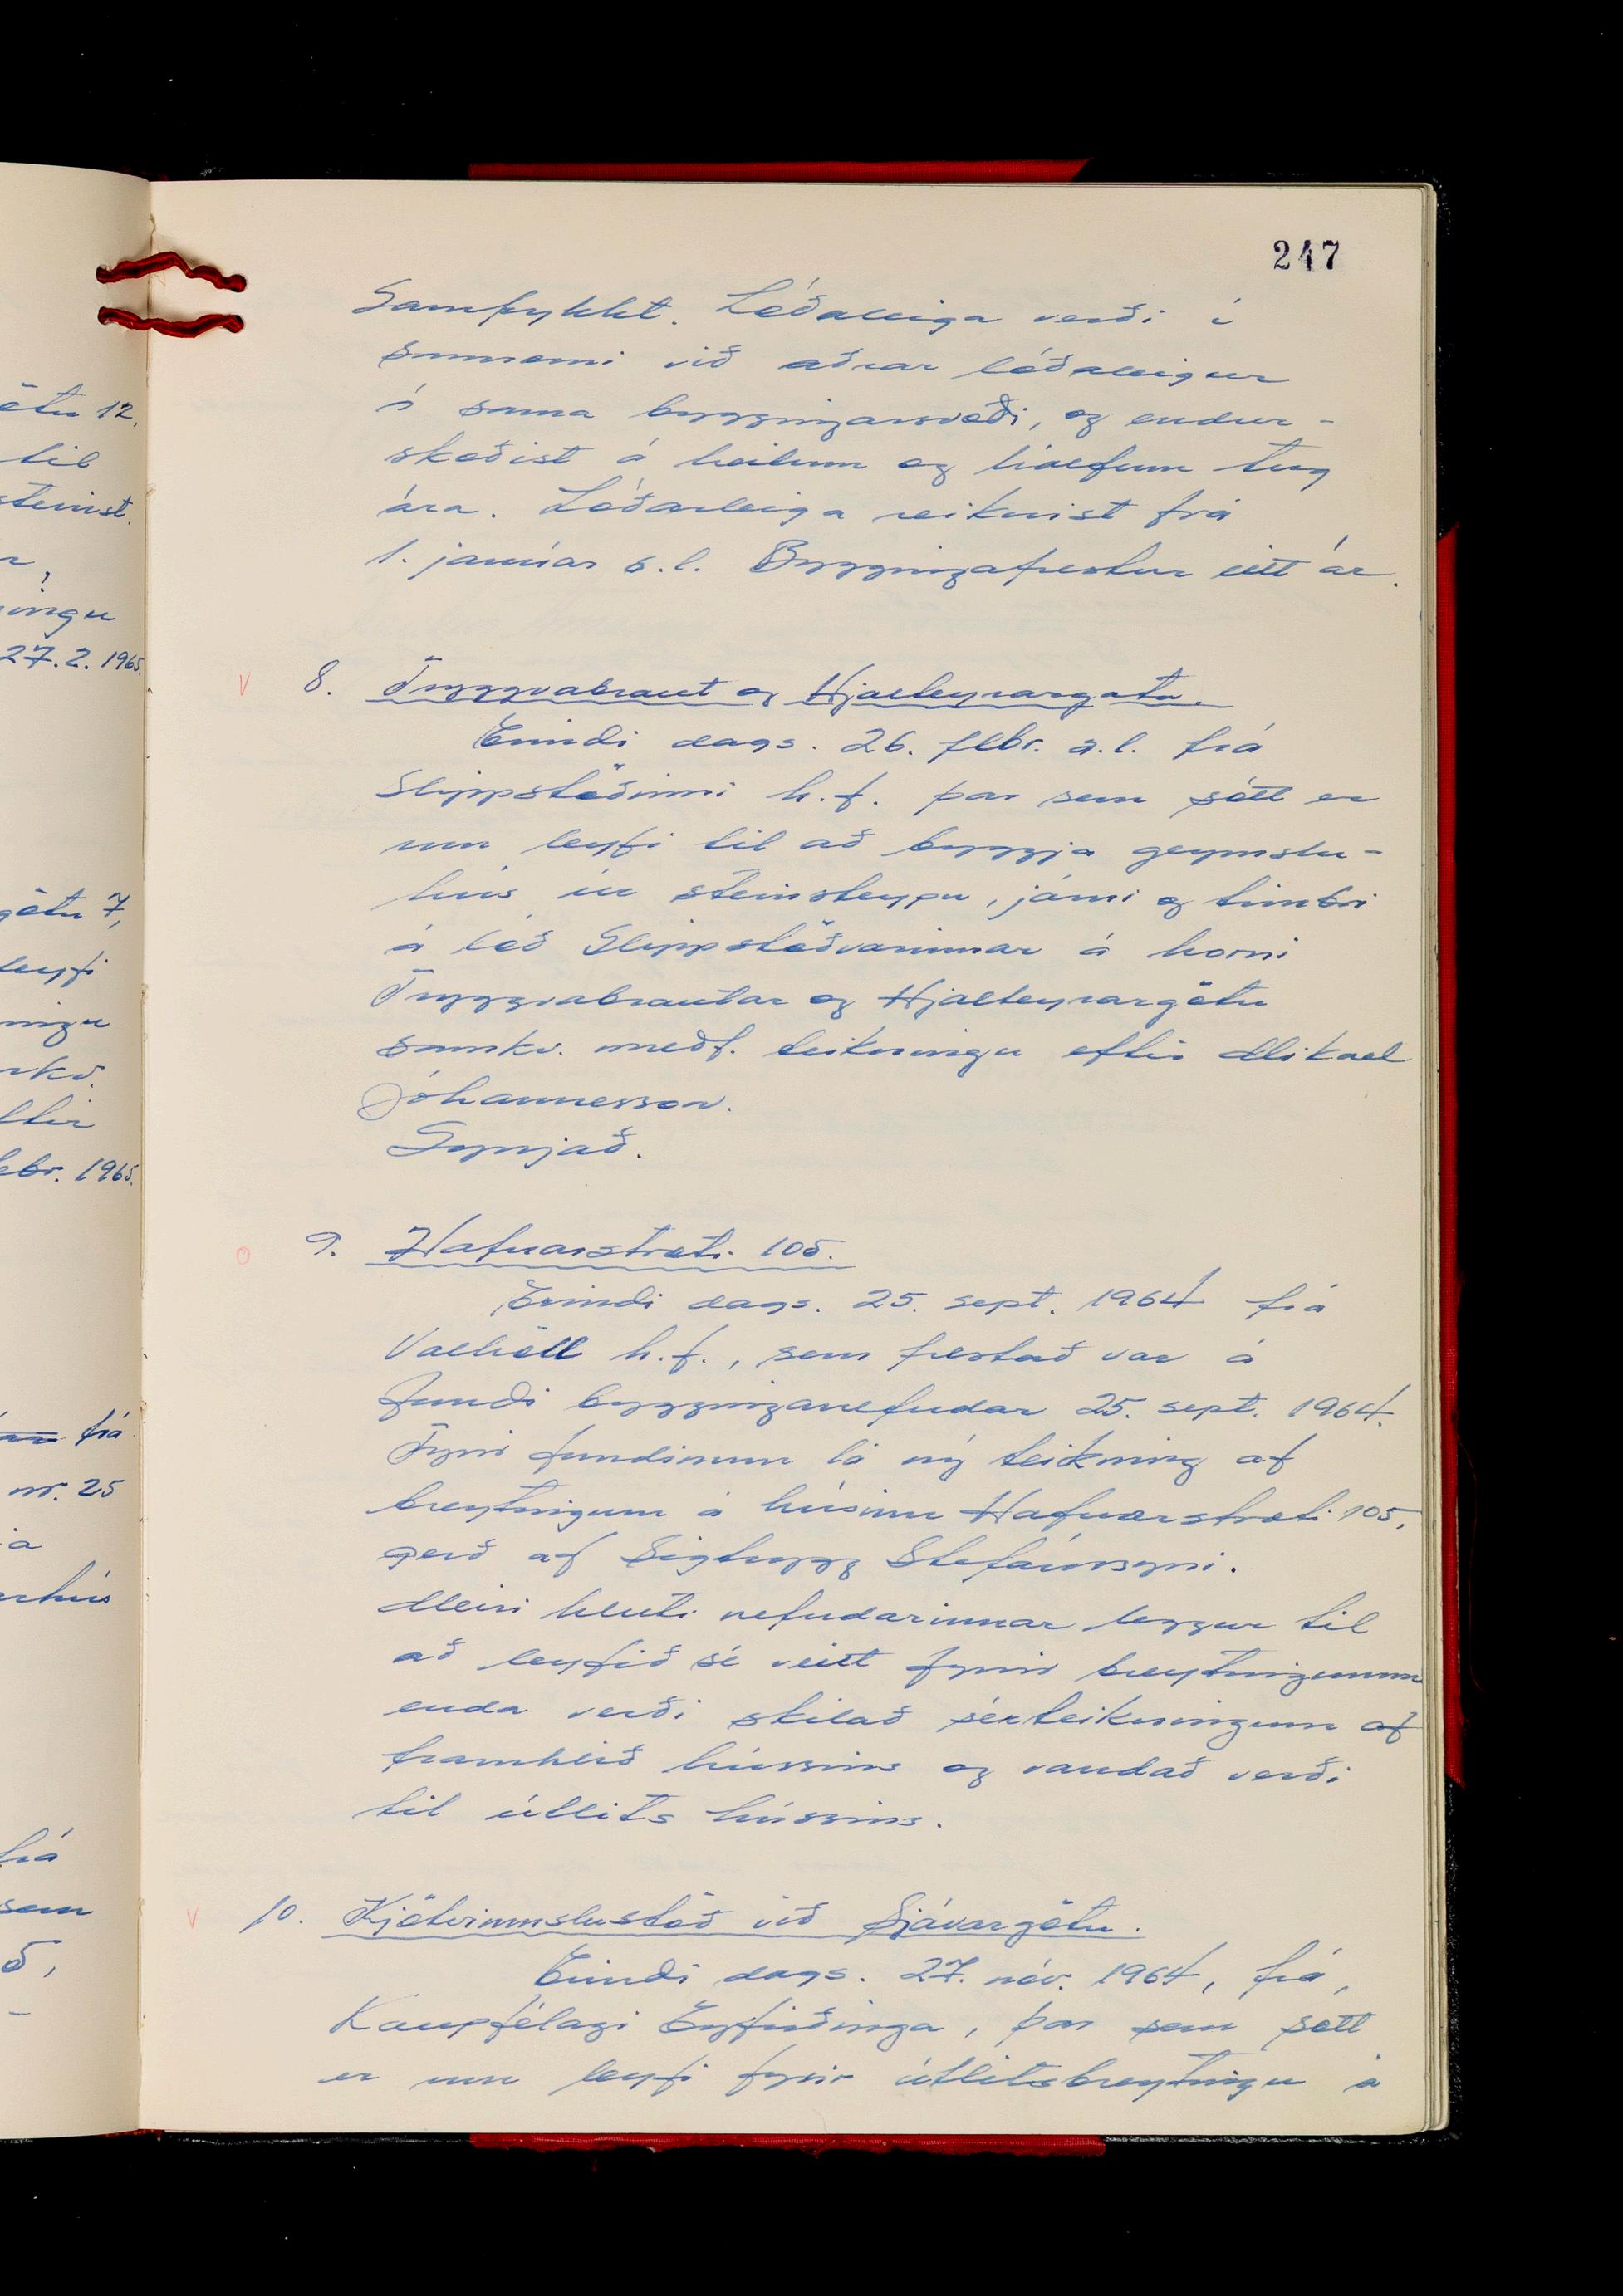 247
Samþykkt. Lóðaleiga verði í
samræmi við aðrar lóðaleigur
á sama byggingarsvæði, og endur-
skoðist á heilum og hálfum tug
ára. Lóðarleiga reiknist frá
1. janúar s.l. Byggingafrestur eitt ár.
8. Tryggvabraut og Hjalteyrargata.
Erindi dags. 26. febr. s.l. frá
Slippstöðinni h.f. þar sem sótt er
um leyfi til að byggja geymslu-
hús úr steinsteypu, járni og timbri
á lóð Slippstöðvarinnar á horni
Tryggvabrautar og Hjalteyrargötu
samkv. meðf. teikningu eftir Mikael
Jóhannesson.
Synjað.
9. Hafnarstræti 105.
Erindi dags. 25. sept. 1964 frá
Valhöll h.f., sem frestað var á
fundi bygginganefndar 25. sept. 1964.
Fyrir fundinum lá ný teikning af
breytingum á húsinu Hafnarstræti 105,
gerð af Sigtrygg Stefánssyni.
Meiri hluti nefndarinnar leggur til
að leyfið sé veitt fyrir breytingunum
enda verði skilað sérteikningum af
framhlið hússins og vandað verði
til útlits hússins.
10. Kjötvinnslustöð við Sjávargötu.
Erindi dags. 27. nóv. 1964, frá,
Kaupfélagi Eyfirðinga, þar sem sótt
er um leyfi fyrir útlitsbreytingu á
ötu 12,
til
steinst.
ingu
27.2. 1965.
götu 7,
leyfi
ningu
mkv.
ftir
febr. 1965.
frá
nr. 25
ja
rhús
frá
sem
ð,